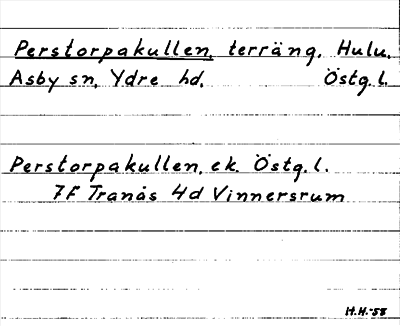 Perstorpakullen, terräng. Hulu.
Asby sn, Ydre hd. Östg.l.
Perstorpakullen, ek. Östg.l.
7F Tranås 4d Vinnersrum
H.H.-58